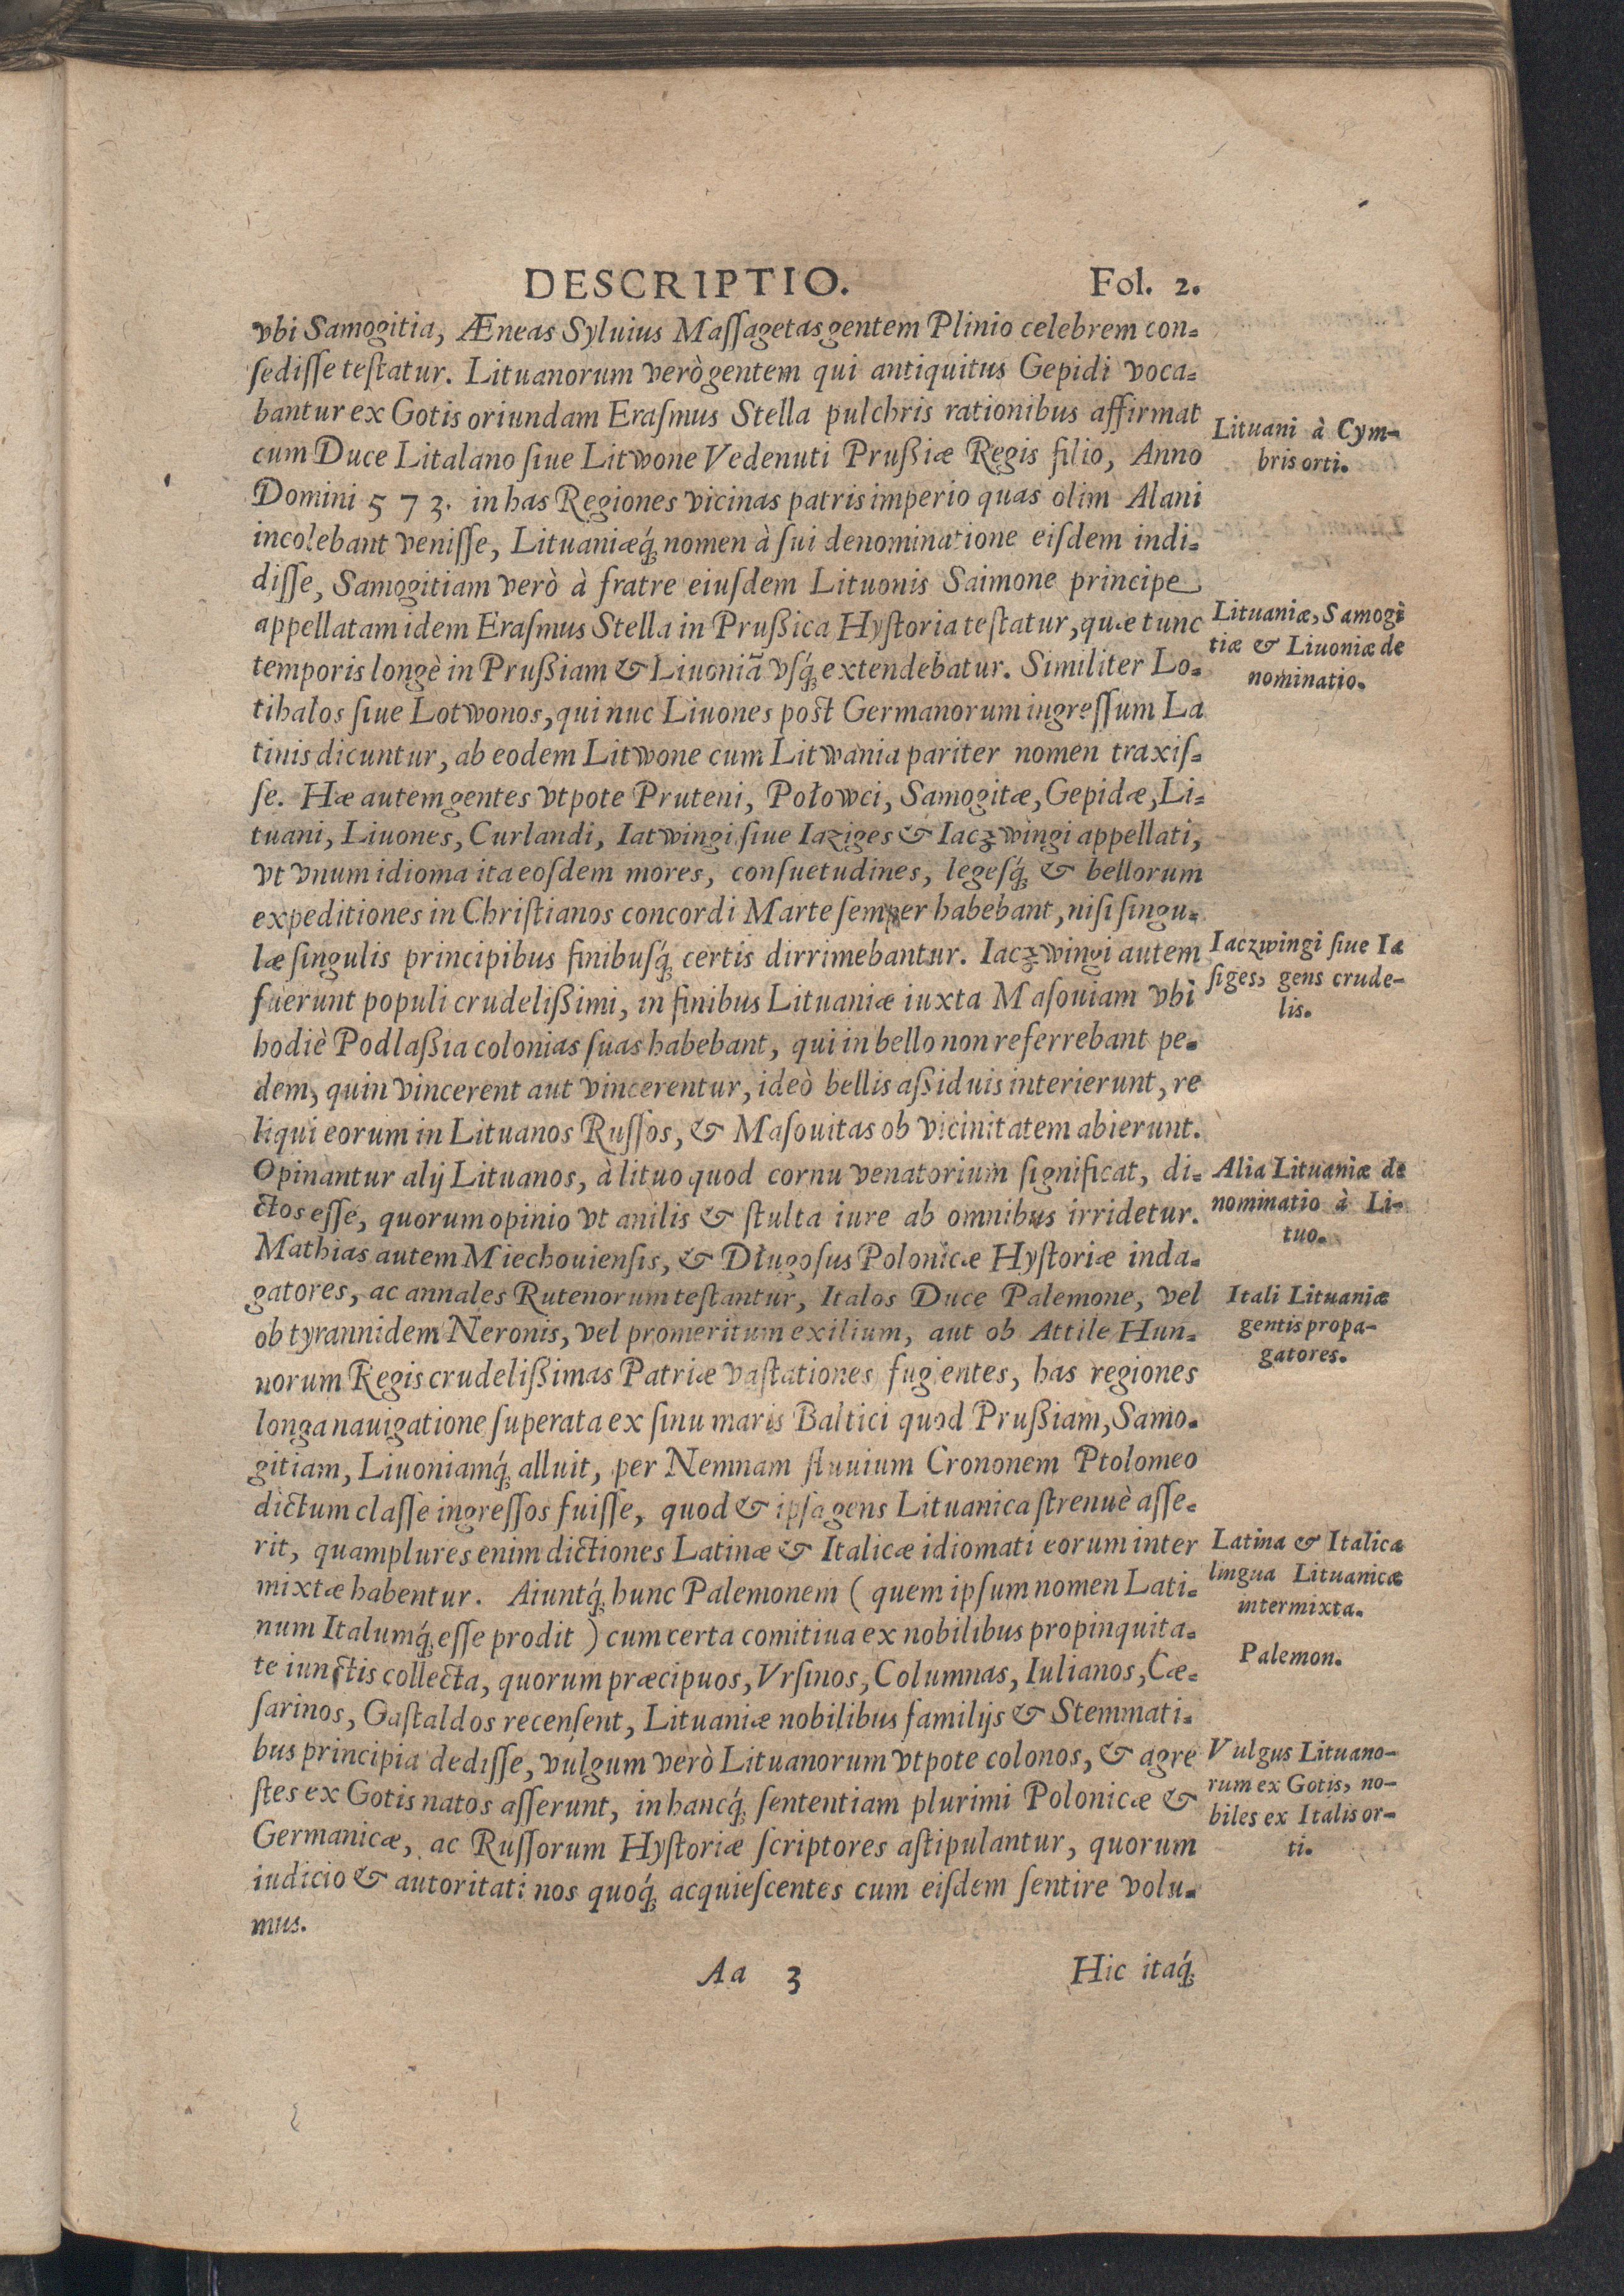 DESCRIPTIO. Fol. 2.
vbi Samogitia, Æneas Syluius Maſſagetas gentem Plinio celebrem con⸗
ſediſſe teſtatur. Lituanorum verò gentem qui antiquitus Gepidi voca⸗
bantur ex Gotis oriundam Eraſmus Stella pulchris rationibus affirmat
cum Duce Litalano ſiue Litwone Vedenuti Prußiæ Regis filio, Anno
Domini 573. in has Regiones vicinas patris imperio quas olim Alani
incolebant veniſſe, Lituaniæq́; nomen à ſui denominatione eiſdem indi⸗
diſſe, Samogitiam verò à fratre eiuſdem Lituonis Saimone principe
appellatam idem Eraſmus Stella in Prußica Hyſtoria teſtatur, quæ tunc
temporis longè in Prußiam & Liuoniã vſq́; extendebatur. Similiter Lo⸗
tihalos ſiue Lotwonos, qui nuc Liuones poſt Germanorum ingreſſum La
tinis dicuntur, ab eodem Litwone cum Litwania pariter nomen traxiſ⸗
ſe. Hæ autem gentes vtpote Pruteni, Połowci, Samogitæ, Gepidæ, Li⸗
tuani, Liuones, Curlandi, Iatwingi ſiue Iaziges & Iaczwingi appellati,
vt vnum idioma ita eoſdem mores, conſuetudines, legeſq́; & bellorum
expeditiones in Chriſtianos concordi Marte ſemper habebant, niſi ſingu⸗
læ ſingulis principibus finibuſq́; certis dirrimebantur. Iaczwingi autem
fuerunt populi crudelißimi, in finibus Lituaniæ iuxta Maſouiam vbi
hodiè Podlaßia colonias ſuas habebant, qui in bello non referrebant pe⸗
dem, quin vincerent aut vincerentur, ideò bellis aßiduis interierunt, re
liqui eorum in Lituanos Ruſſos, & Maſouitas ob vicinitatem abierunt.
Opinantur alij Lituanos, à lituo quod cornu venatorium ſignificat, di⸗
ctos eſſe, quorum opinio vt anilis & ſtulta iure ab omnibus irridetur.
Mathias autem Miechouienſis, & Długoſus Polonicæ Hyſtoriæ inda⸗
gatores, ac annales Rutenorum teſtantur, Italos Duce Palemone, vel
ob tyrannidem Neronis, vel promeritum exilium, aut ob Attile Hun⸗
norum Regis crudelißimas Patriæ vaſtationes fugientes, has regiones
longa nauigatione ſuperata ex ſinu maris Baltici quod Prußiam, Samo⸗
gitiam, Liuoniamq́; alluit, per Nemnam fluuium Crononem Ptolomeo
dictum claſſe ingreſſos fuiſſe, quod & ipſa gens Lituanica ſtrenuè aſſe⸗
rit, quamplures enim dictiones Latinæ & Italicæ idiomati eorum inter
mixtæ habentur. Aiuntq́; hunc Palemonem ( quem ipſum nomen Lati⸗
num Italumq́; eſſe prodit ) cum certa comitiua ex nobilibus propinquita⸗
te iunctis collecta, quorum præcipuos, Vrſinos, Columnas, Iulianos, Cæ⸗
ſarinos, Gaſtaldos recenſent, Lituaniæ nobilibus familijs & Stemmati⸗
bus principia dediſſe, vulgum verò Lituanorum vtpote colonos, & agre
ſtes ex Gotis natos aſſerunt, in hancq́; ſententiam plurimi Polonicæ &
Germanicæ, ac Ruſſorum Hyſtoriæ ſcriptores aſtipulantur, quorum
iudicio & autoritati nos quoq́; acquieſcentes cum eiſdem ſentire volu⸗
mus.
Aa 3 Hic itaq́;
Lituani à Cym⸗
bris orti.
Lituaniæ, Samogi
tiæ & Liuoniæ de
nominatio.
Iaczwingi ſiue Ia
ſiges, gens crude⸗
lis.
Alia Lituaniæ de
nominatio à Li⸗
tuo.
Itali Lituaniæ
gentis propa⸗
gatores.
Latina & Italica
lingua Lituanicæ
intermixta.
Palemon.
Vulgus Lituano⸗
rum ex Gotis, no⸗
biles ex Italis or⸗
ti.